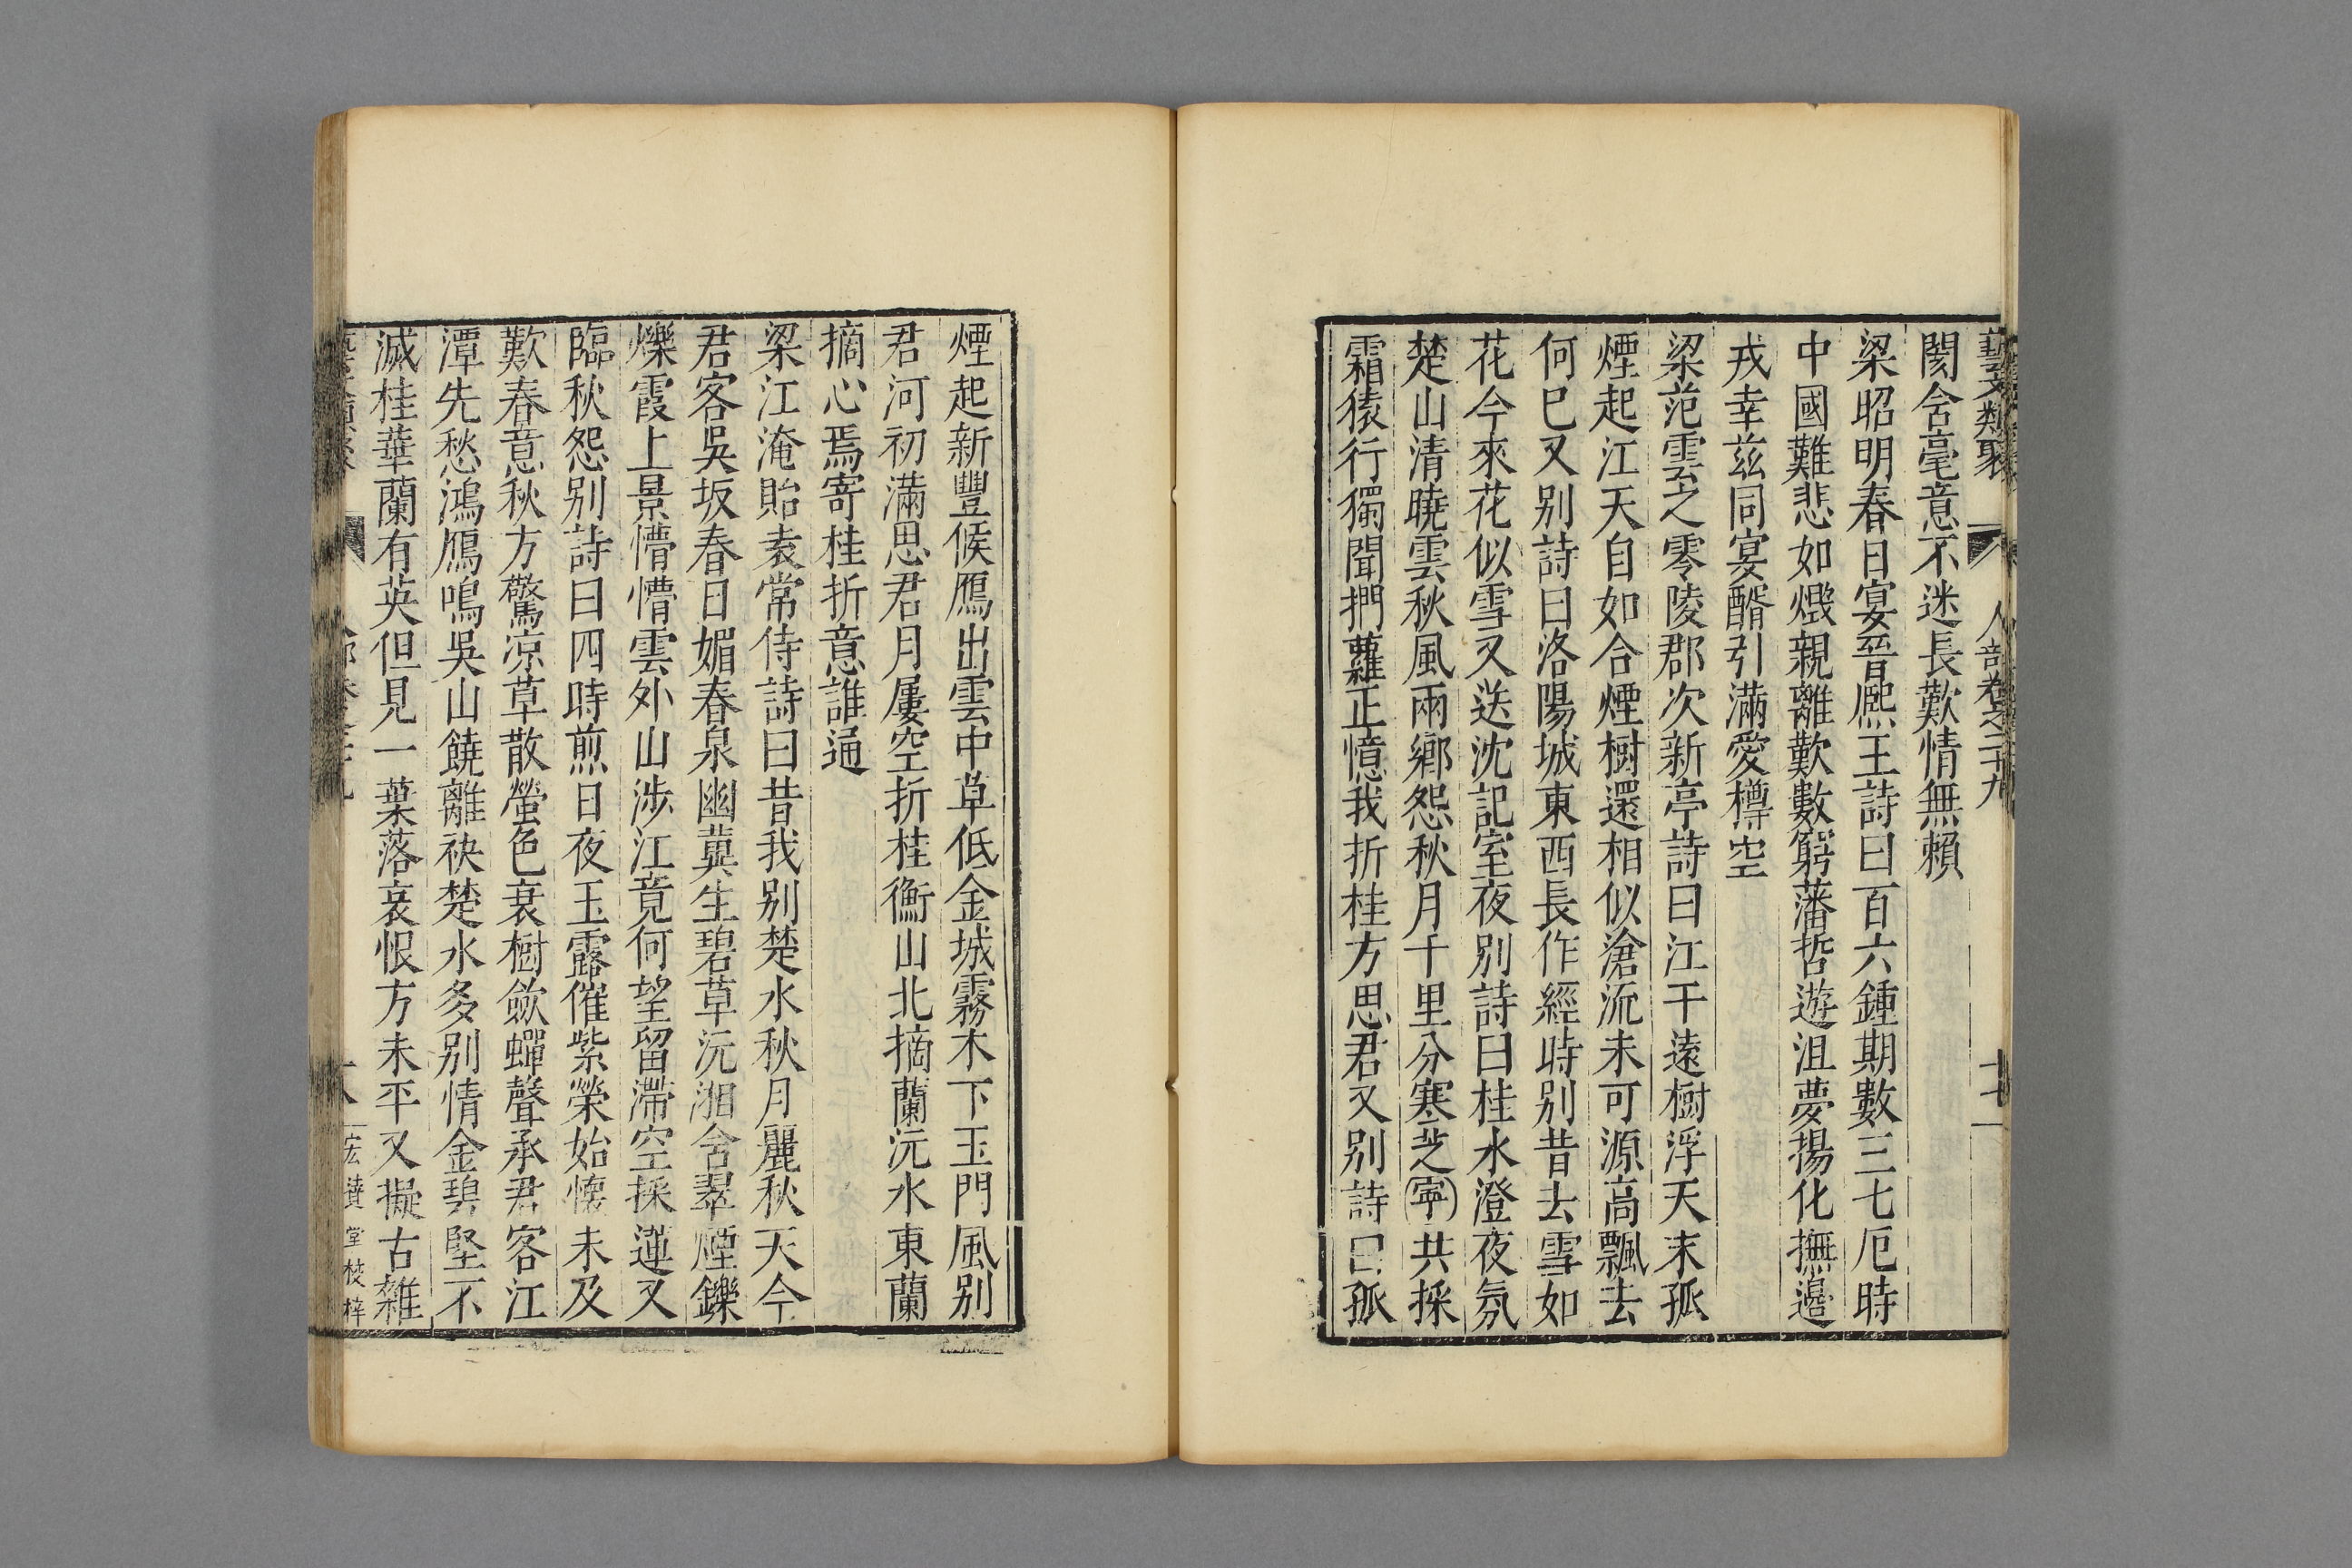 藝文類聚 人部卷之二十九 十七
閡含毫意不迷長歎情無賴
梁昭明春日宴晉熈王詩曰百六鍾期數三七厄時
中國難悲如燬親離歎數窮藩哲遊沮夢揚化撫邊
戎幸兹同宴醑引滿愛樽空
梁范雲之零陵郡次新亭詩曰江干遠樹浮天末孤
煙起江天自如合煙樹還相似滄流未可源高飄去
何已又别詩曰洛陽城東西長作經時别昔去雪如
花今來花似雪又送沈記室夜别詩曰桂水澄夜氛
楚山清曉雲秋風兩鄉怨秋月千里分寒芝寧共採
霜猿行獨聞捫蘿正憶我折桂方思君又别詩曰孤
煙起新豐候鴈出雲中草低金城霧木下玉門風别
君河初滿思君月屢空折桂衡山北摘蘭沅水東蘭
摘心焉寄桂折意誰通
梁江淹貽袁常侍詩曰昔我别楚水秋月麗秋天今
君客吳坂春日媚春泉幽冀生碧草沅湘含翠煙鑠
爍霞上景懵懵雲外山涉江竟何望留滯空採蓮又
臨秋怨别詩曰四時煎日夜玉露催紫榮始懷未及
歎春意秋方驚凉草散螢色衰樹歛蟬聲承君客江
潭先愁鴻鴈鳴吳山饒離袂楚水多别情金碧堅不
滅桂華蘭有英但見一葉落哀恨方未平又擬古雜
十八 宏達堂校梓